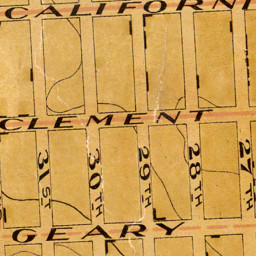 CALIFORNI
CLEMENT
31ST
30TH
29TH
28TH
27TH
GEARY